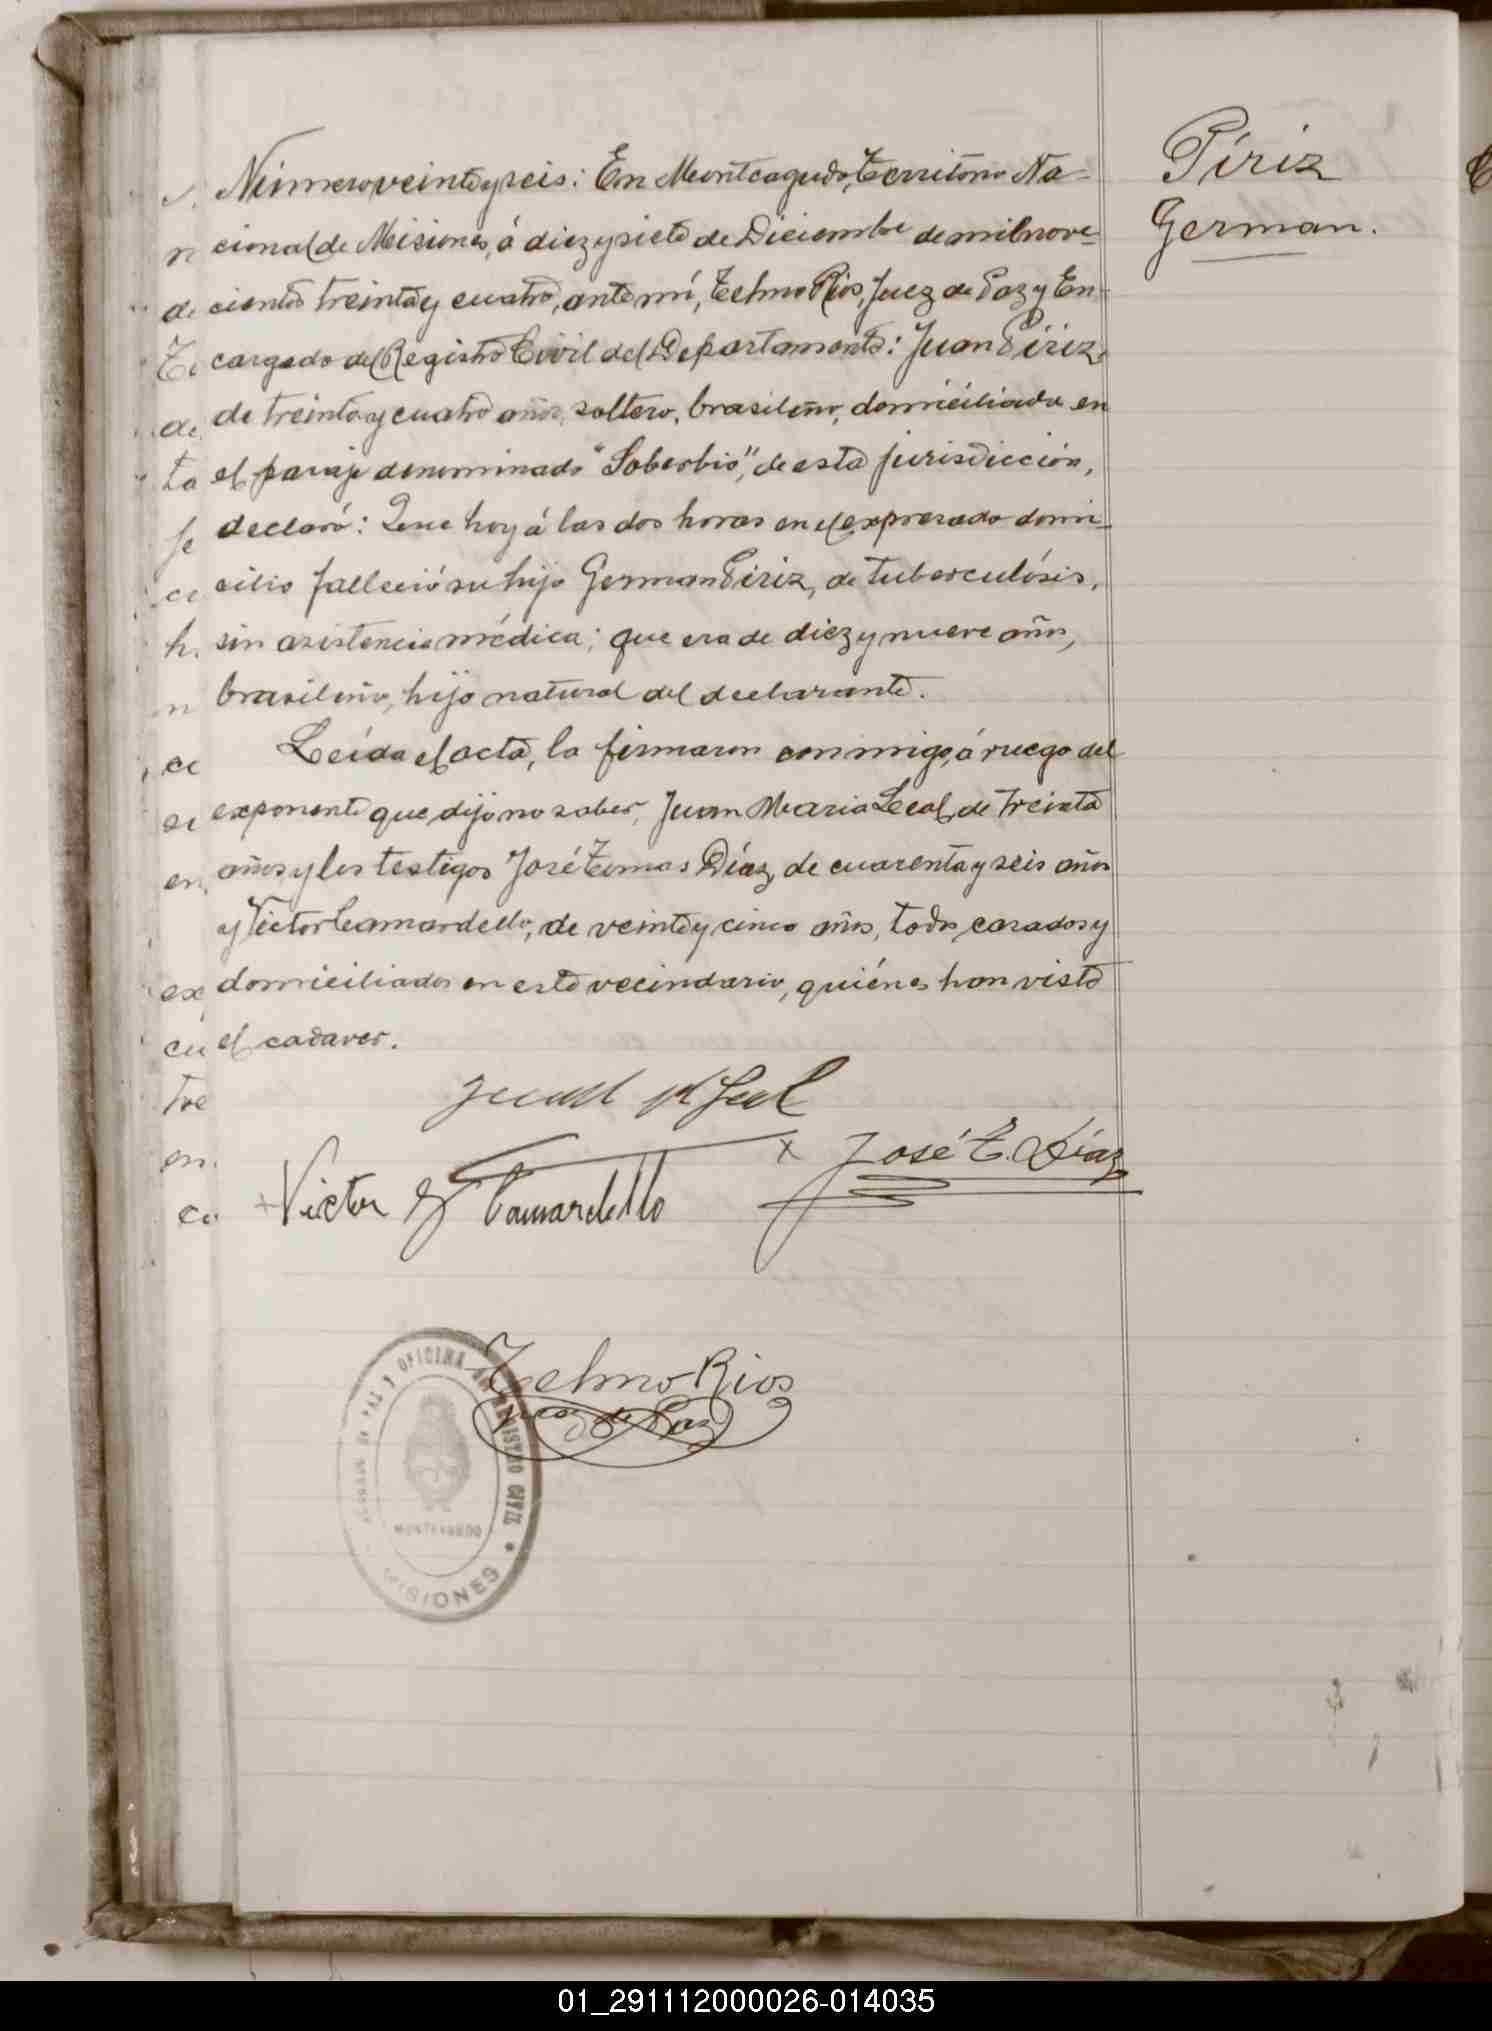 Píriz
German.
Número veinte y seis: En Monteagudo, Territorio Na-
cional de Misiones, á diez y siete de Diciembre de mil nove-
cientos treinta y cuatro, ante mí, Telmo Rios, Juez de Paz y En-
cargado del Registro Civil del Departamento: Juan Píriz,
de treinta y cuatro años, soltero, brasileño, domiciliado en
el paraje denominado "Soberbio", de esta jurisdicción,
declaró: Que hoy á las dos horas en el expresado domi-
cilio falleció su hijo German Píriz, de tuberculósis,
sin asistencia médica; que era de diez y nueve años,
brasileño, hijo natural del declarante.
Leída el acta, la firmaron conmigo, á ruego del
exponente que dijo no saber, Juan Maria Leal, de treinta
años y los testigos José Tomas Díaz, de cuarenta y seis años
y Victor Camardello, de veinte y cinco años, todos casados y
domiciliados en este vecindario, quiénes han visto
el cadaver.
Juan M Leal
x José T. Díaz
Victor Camardello
Telmo Rios
Juez de Paz
DE PAZ Y OFICINA REGISTRO CIVIL
MONTEAGUDO
MISIONES
01_291112000026-014035